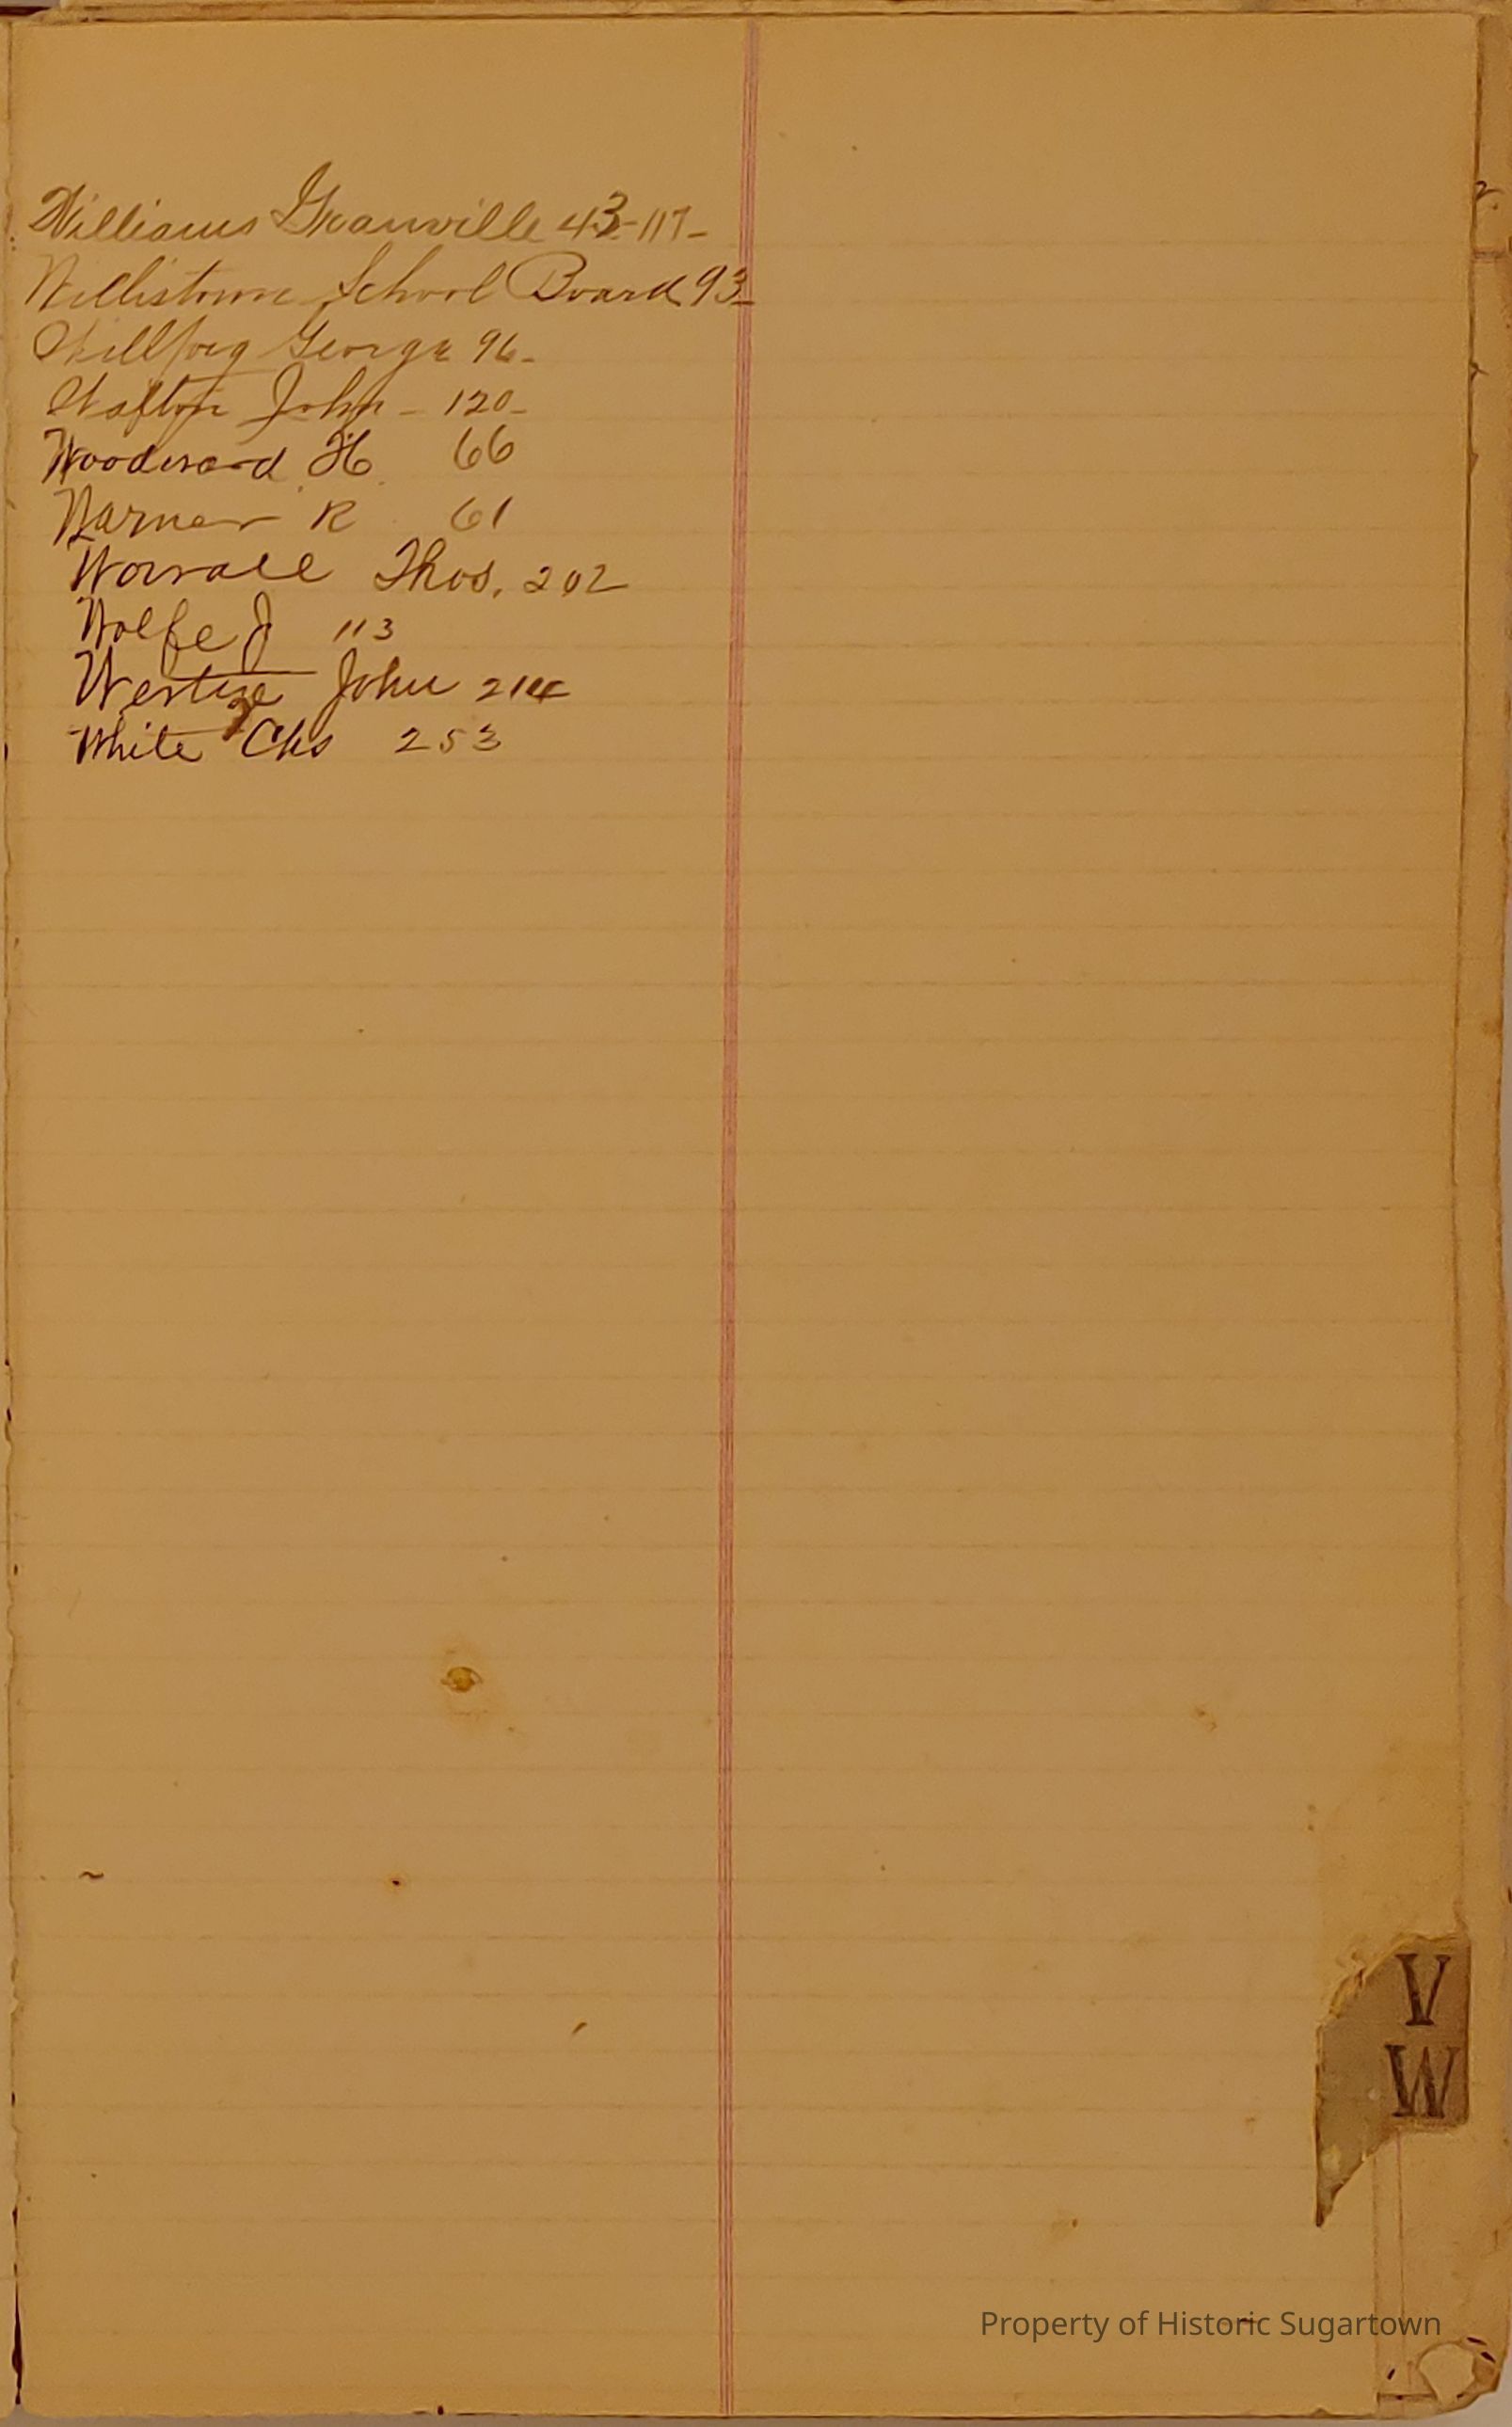 Williams Granville 43-117-
Willistown School Board 93-
George 96-
John - 120-
Woodward H 66
Warner R 61
Worrall Thos. 202
Wolfe J 113
John 214
White Chs 253
V
W
Property of Historic Sugartown